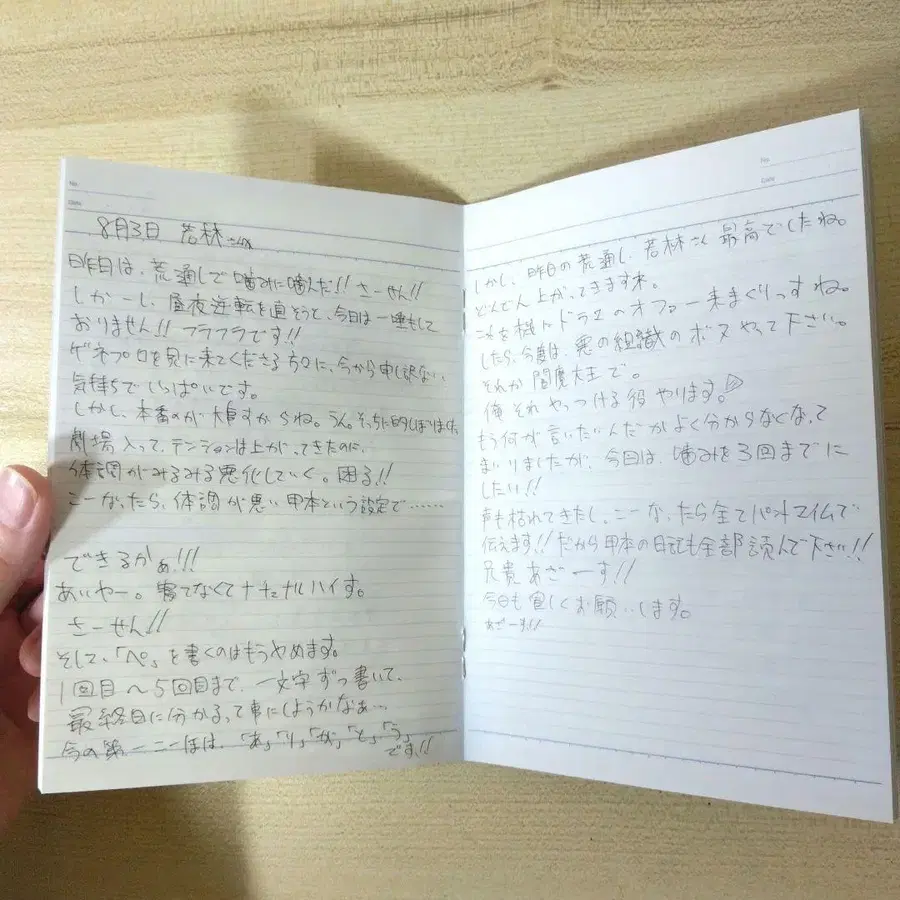 No.
Date
8月3日 若林さん
昨日は、荒通しで噛みに噛んだ!! さーせん!!
しかーし、昼夜逆転を直そうと、今日は一睡もして
おりません!! フラフラです!!
ゲネプロを見に来てくださる方々に、今から申し訳ない、
気持ちでいっぱいです。
しかし、本番のが大事すからね。うん。そっちに的しぼりました
劇場入って、テンションは上がってきたのに、
体調がみるみる悪化していく。困る!!
こーなったら、体調が悪い甲本という設定で……
できるかぁ!!!
あいやー。寝てなくてナチュナルハイす。
さーせん!!
そして、「ペ。」を書くのはもうやめます。
1回目〜5回目まで、一文字ずつ書いて、
最終日に分かるって事にしようかなぁ…
今の第一こーほは、「あ」「り」「が」「と」「う」
です!!
No.
Date
しかし、昨日の荒通し、若林さん最高でしたね。
どんどん上がってきますネ。
これを機にドラマのオファー来まくりっすね。
したら、今度は、悪の組織のボスやって下さい。
それか閻魔大王で。
俺それやっつける役やります。
もう何が言いたいんだかよく分からなくなって
まいりましたが、今日は、噛みを3回までに
したい!!
声も枯れてきたし、こーなったら全てパントマイムで
伝えます!! だから甲本の日でも全部読んで下さい!!
兄貴あざーす!!
今日も宜しくお願いします。
あざーす!!